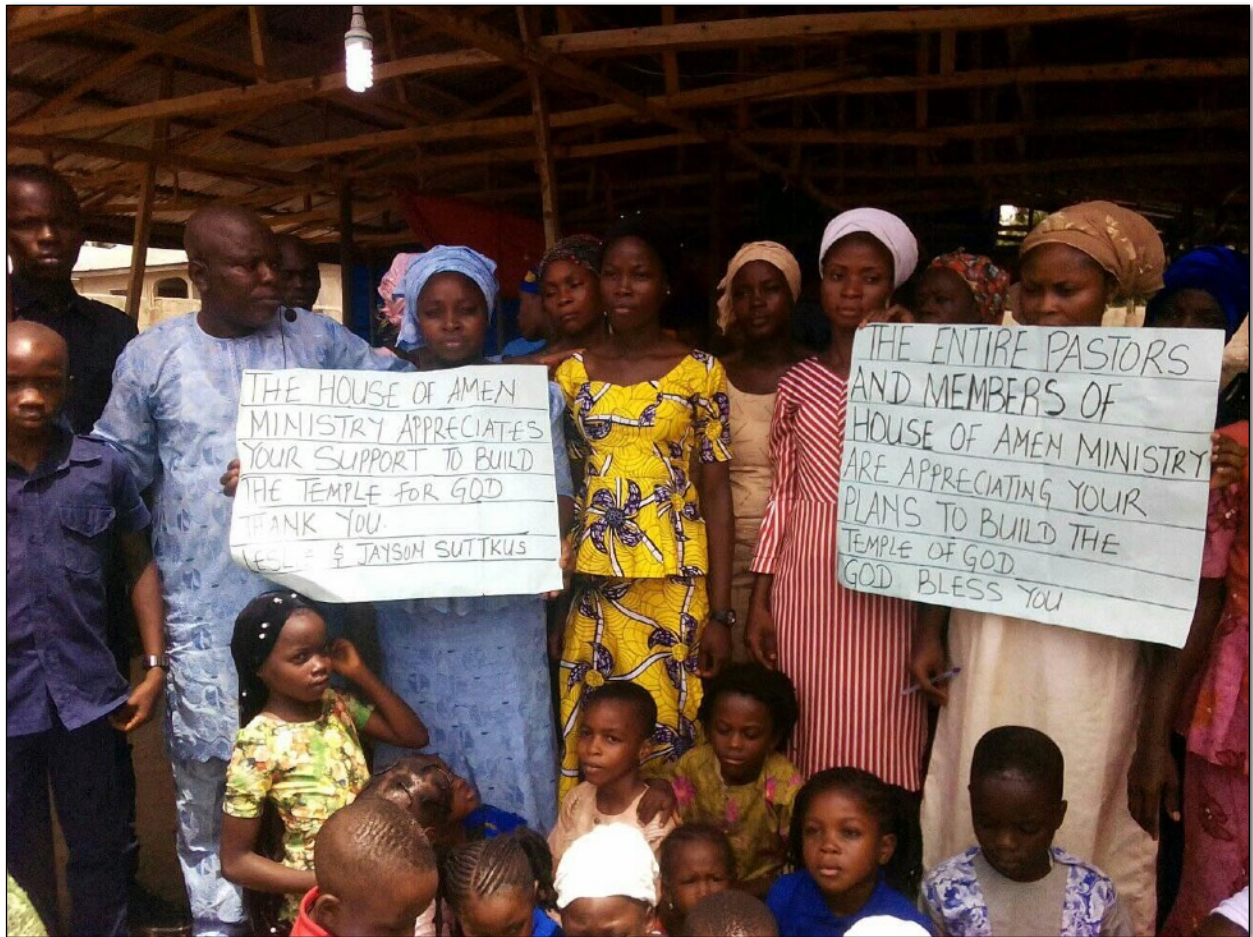 THE HOUSE OF AMEN
MINISTRY APPRECIATES
YOUR SUPPORT TO BUILD
THE TEMPLE FOR GOD
THANK YOU.
& JAYSON SUTTKUS
THE ENTIRE PASTORS
AND MEMBERS OF
HOUSE OF AMEN MINISTRY
ARE APPRECIATING YOUR
PLANS TO BUILD THE
TEMPLE OF GOD
GOD BLESS YOU